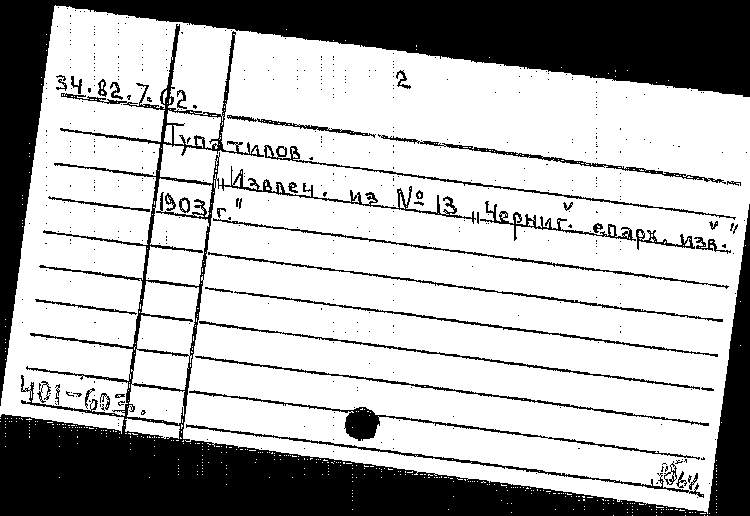 2
34.82.7.62.
Тупатилов.
„Извлеч. из № 13 „Черниг. епарх. изв.“
1903 г."
401-603.